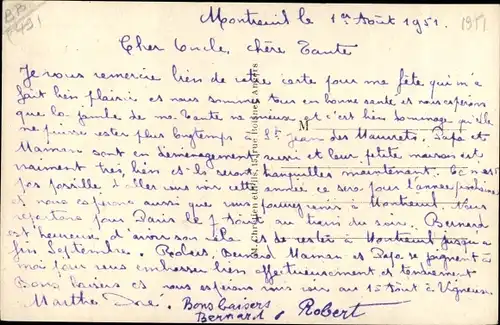 Montreuil le 1er Août 1951.
1951
Cher Oncle, chère Tante
Je vous remercie bien de votre carte pour ma fête qui m'a
fait bien plaisir et nous sommes tous en bonne santé et nous espérons
que la jambe de ma Tante va mieux et c'est bien dommage qu'elle
ne puisse rester plus longtemps à St Jean des Mauvrets. Papa et
Maman sont en déménagement aussi et leur petite maison est
vraiment très bien et ils seront tranquilles maintenant. Ce n'est
pas possible d'aller vous voir cette année ce sera pour l'année prochaine
et nous espérons aussi que vous pourrez venir à Montreuil. Nous
repartons pour Paris le août au train du soir. Bernard
est heureux d'avoir son vélo et de rester à Montreuil jusqu'à
fin Septembre. Robert, Bernard Maman et Papa se joignent à
moi pour vous embrasser bien affectueusement et tendrement
Bons baisers et nous espérons vous voir au 15 Août à Vigneux
Marthe Bons baisers Robert
Bernard